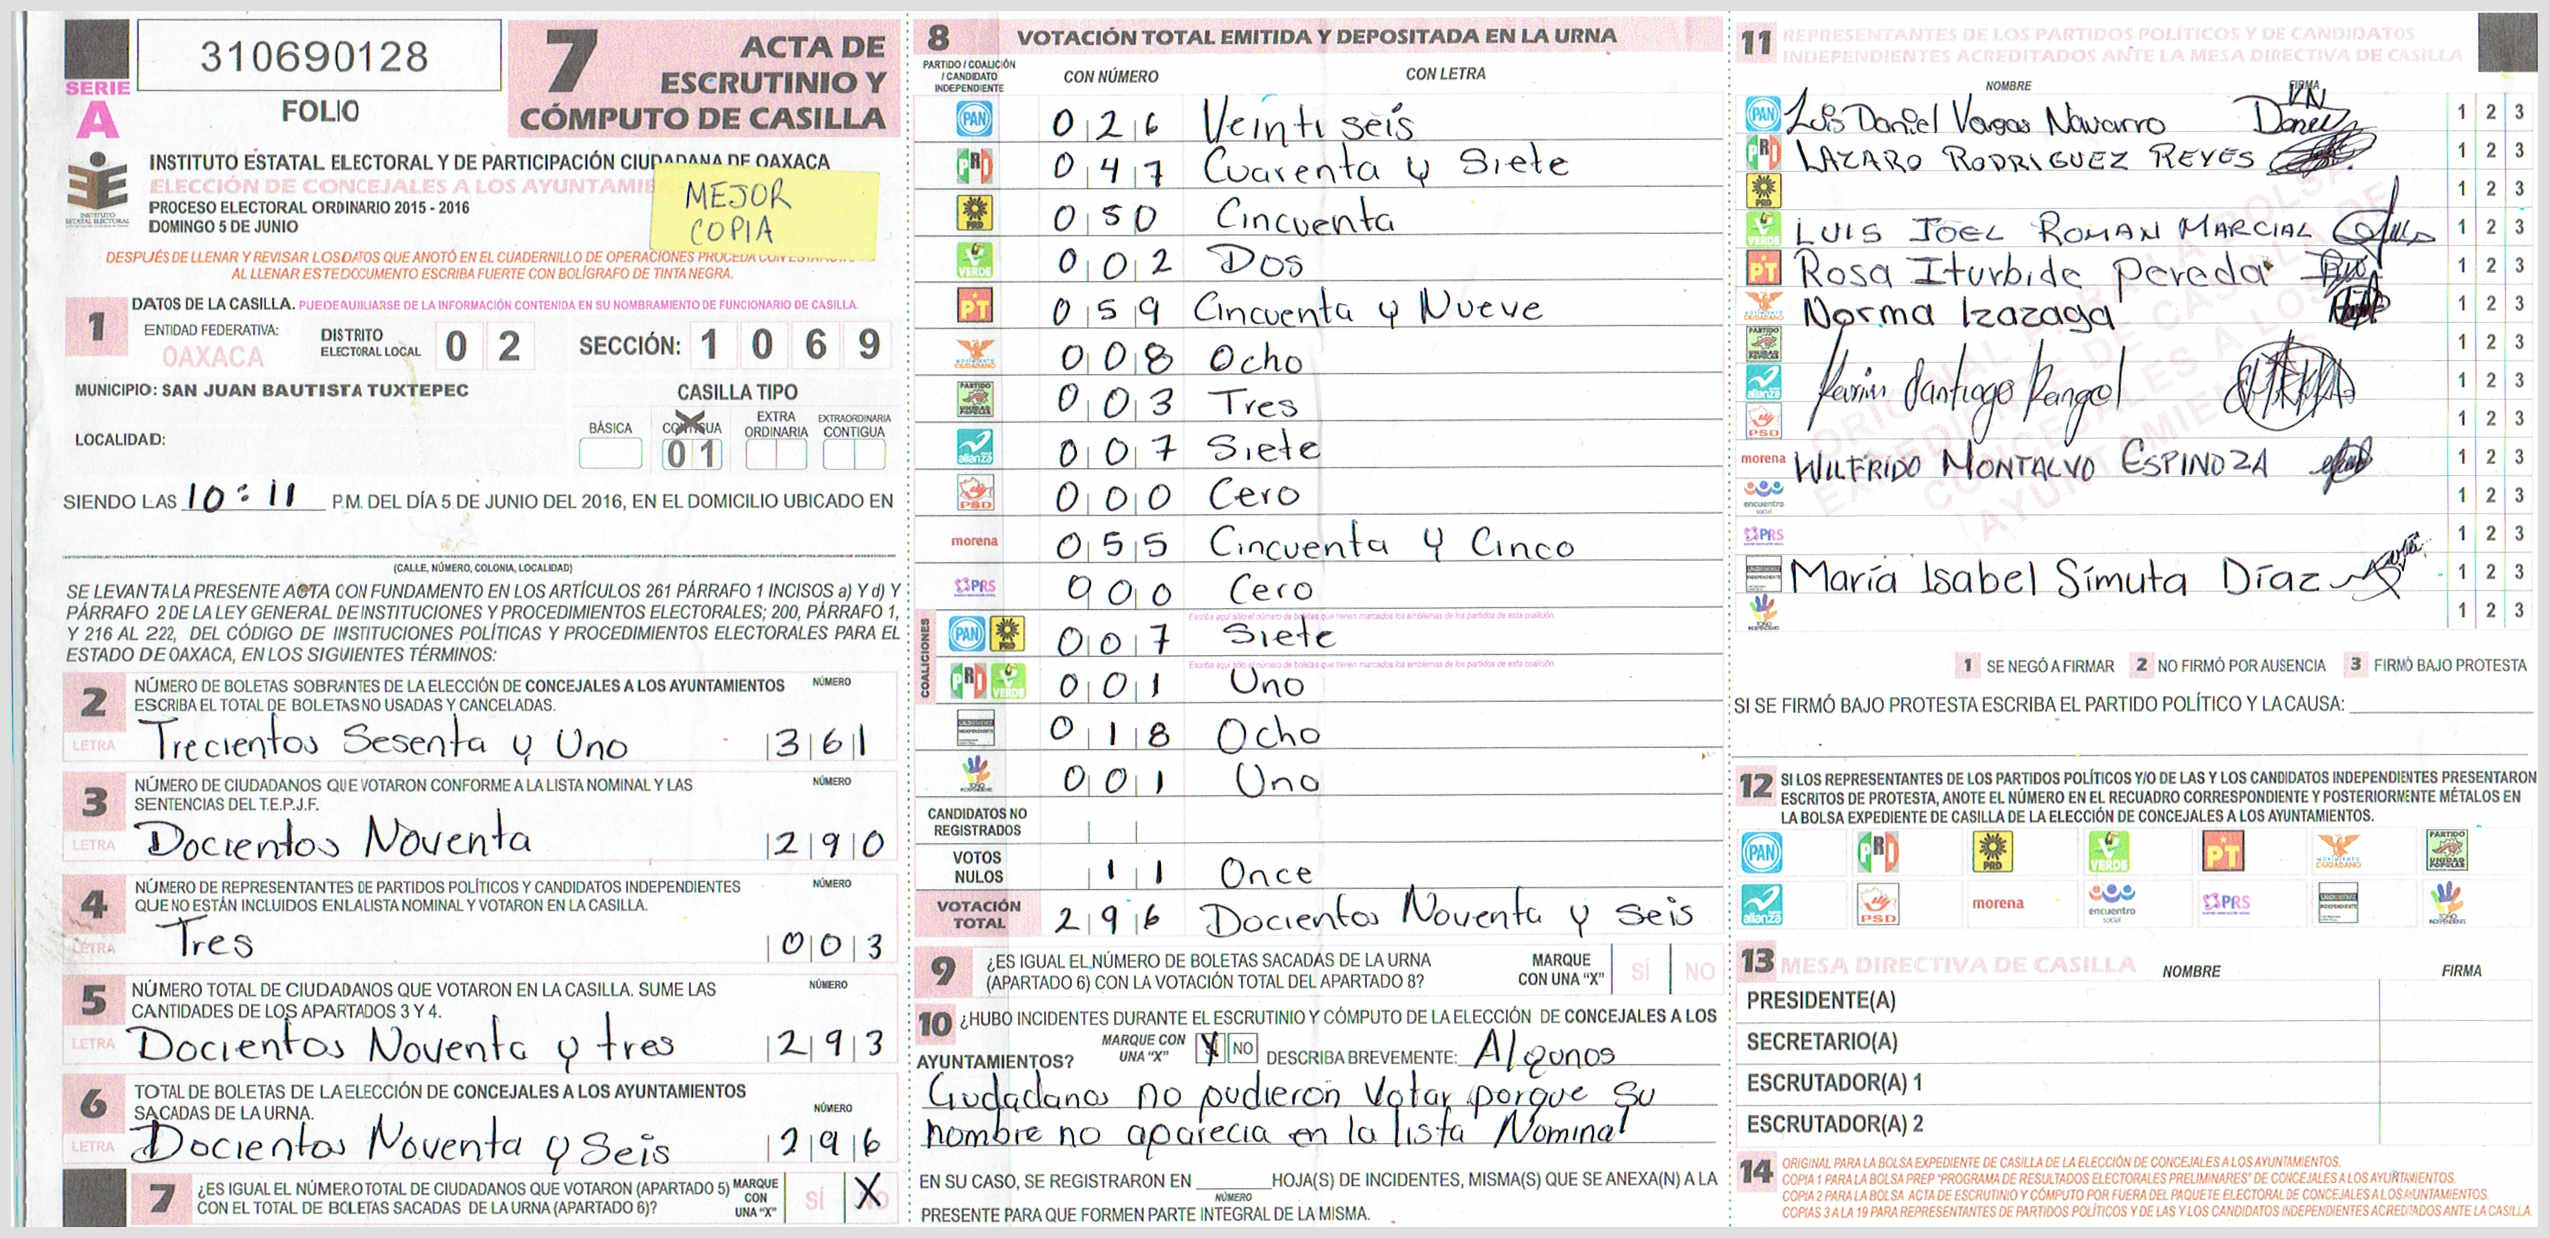 310690128
SERIE
A
FOLIO
7 ACTA DE
ESCRUTINIO Y
CÓMPUTO DE CASILLA
INSTITUTO ESTATAL ELECTORAL Y DE PARTICIPACIÓN CIUDADANA DE OAXACA
ELECCIÓN DE CONCEJALES A LOS AYUNTAMIE
PROCESO ELECTORAL ORDINARIO 2015 - 2016
DOMINGO 5 DE JUNIO
MEJOR
COPIA
DESPUÉS DE LLENAR Y REVISAR LOS DATOS QUE ANOTÓ EN EL CUADERNILLO DE OPERACIONES PROCEDA CON
AL LLENAR ESTE DOCUMENTO ESCRIBA FUERTE CON BOLÍGRAFO DE TINTA NEGRA.
1 DATOS DE LA CASILLA. PUEDE AUXILIARSE DE LA INFORMACIÓN CONTENIDA EN SU NOMBRAMIENTO DE FUNCIONARIO DE CASILLA.
ENTIDAD FEDERATIVA:
OAXACA
DISTRITO
ELECTORAL LOCAL 0 2
SECCIÓN: 1 0 6 9
MUNICIPIO: SAN JUAN BAUTISTA TUXTEPEC
CASILLA TIPO
LOCALIDAD:
BÁSICA CONTIGUA EXTRA ORDINARIA EXTRAORDINARIA CONTIGUA
0 1
SIENDO LAS 10:11 P.M. DEL DÍA 5 DE JUNIO DEL 2016, EN EL DOMICILIO UBICADO EN
(CALLE, NÚMERO, COLONIA, LOCALIDAD)
SE LEVANTA LA PRESENTE ACTA CON FUNDAMENTO EN LOS ARTÍCULOS 261 PÁRRAFO 1 INCISOS a) Y d) Y
PÁRRAFO 2 DE LA LEY GENERAL DE INSTITUCIONES Y PROCEDIMIENTOS ELECTORALES; 200, PÁRRAFO 1,
Y 216 AL 222, DEL CÓDIGO DE INSTITUCIONES POLÍTICAS Y PROCEDIMIENTOS ELECTORALES PARA EL
ESTADO DE OAXACA, EN LOS SIGUIENTES TÉRMINOS:
2 NÚMERO DE BOLETAS SOBRANTES DE LA ELECCIÓN DE CONCEJALES A LOS AYUNTAMIENTOS NÚMERO
ESCRIBA EL TOTAL DE BOLETAS NO USADAS Y CANCELADAS.
LETRA Trecientos Sesenta y Uno 361
3 NÚMERO DE CIUDADANOS QUE VOTARON CONFORME A LA LISTA NOMINAL Y LAS NÚMERO
SENTENCIAS DEL T.E.P.J.F.
LETRA Docientos Noventa 290
4 NÚMERO DE REPRESENTANTES DE PARTIDOS POLÍTICOS Y CANDIDATOS INDEPENDIENTES NÚMERO
QUE NO ESTÁN INCLUIDOS EN LA LISTA NOMINAL Y VOTARON EN LA CASILLA.
LETRA Tres 003
5 NÚMERO TOTAL DE CIUDADANOS QUE VOTARON EN LA CASILLA. SUME LAS NÚMERO
CANTIDADES DE LOS APARTADOS 3 Y 4.
LETRA Docientos Noventa y tres 293
6 TOTAL DE BOLETAS DE LA ELECCIÓN DE CONCEJALES A LOS AYUNTAMIENTOS
SACADAS DE LA URNA. NÚMERO
LETRA Docientos Noventa y Seis 296
7 ¿ES IGUAL EL NÚMERO TOTAL DE CIUDADANOS QUE VOTARON (APARTADO 5) MARQUE CON UNA "X" SÍ NO X
CON EL TOTAL DE BOLETAS SACADAS DE LA URNA (APARTADO 6)?
8 VOTACIÓN TOTAL EMITIDA Y DEPOSITADA EN LA URNA
PARTIDO / COALICIÓN / CANDIDATO INDEPENDIENTE CON NÚMERO CON LETRA
PAN 026 Veinti seis
PRD 047 Cuarenta y Siete
PRD 050 Cincuenta
VERDE 002 Dos
PT 059 Cincuenta y Nueve
MOVIMIENTO CIUDADANO 008 Ocho
PARTIDO UNIDAD POPULAR 003 Tres
alianza 007 Siete
PSD 000 Cero
morena 055 Cincuenta y Cinco
PRS 000 Cero
COALICIONES
Escriba aquí sólo el número de boletas que tienen marcados los emblemas de los partidos de esta coalición.
PAN PRD 007 Siete
Escriba aquí sólo el número de boletas que tienen marcados los emblemas de los partidos de esta coalición.
PRI VERDE 001 Uno
018 Ocho
001 Uno
CANDIDATOS NO
REGISTRADOS
VOTOS
NULOS 11 Once
VOTACIÓN
TOTAL 296 Docientos Noventa y Seis
9 ¿ES IGUAL EL NÚMERO DE BOLETAS SACADAS DE LA URNA MARQUE SÍ NO
(APARTADO 6) CON LA VOTACIÓN TOTAL DEL APARTADO 8? CON UNA "X"
10 ¿HUBO INCIDENTES DURANTE EL ESCRUTINIO Y CÓMPUTO DE LA ELECCIÓN DE CONCEJALES A LOS
AYUNTAMIENTOS? MARQUE CON UNA "X" X NO DESCRIBA BREVEMENTE: Algunos
Ciudadanos no pudieron Votar porque su
nombre no aparecia en la lista Nominal
EN SU CASO, SE REGISTRARON EN HOJA(S) DE INCIDENTES, MISMA(S) QUE SE ANEXA(N) A LA
NÚMERO
PRESENTE PARA QUE FORMEN PARTE INTEGRAL DE LA MISMA.
11 REPRESENTANTES DE LOS PARTIDOS POLÍTICOS Y DE CANDIDATOS
INDEPENDIENTES ACREDITADOS ANTE LA MESA DIRECTIVA DE CASILLA
NOMBRE FIRMA
PAN Luis Daniel Vargas Navarro 1 2 3
PRI LAZARO RODRIGUEZ REYES 1 2 3
PRD 1 2 3
VERDE LUIS JOEL ROMAN MARCIAL 1 2 3
PT Rosa Iturbide pereda 1 2 3
Norma Izazaga 1 2 3
1 2 3
alianza Karin Santiago Rangel 1 2 3
PSD 1 2 3
morena WILFRIDO MONTALVO ESPINOZA 1 2 3
encuentro social 1 2 3
PRS 1 2 3
María Isabel Simuta Díaz 1 2 3
1 2 3
1 SE NEGÓ A FIRMAR 2 NO FIRMÓ POR AUSENCIA 3 FIRMÓ BAJO PROTESTA
SI SE FIRMÓ BAJO PROTESTA ESCRIBA EL PARTIDO POLÍTICO Y LA CAUSA:
12 SI LOS REPRESENTANTES DE LOS PARTIDOS POLÍTICOS Y/O DE LAS Y LOS CANDIDATOS INDEPENDIENTES PRESENTARON
ESCRITOS DE PROTESTA, ANOTE EL NÚMERO EN EL RECUADRO CORRESPONDIENTE Y POSTERIORMENTE MÉTALOS EN
LA BOLSA EXPEDIENTE DE CASILLA DE LA ELECCIÓN DE CONCEJALES A LOS AYUNTAMIENTOS.
PAN PRI PRD VERDE PT MOVIMIENTO CIUDADANO PARTIDO UNIDAD POPULAR
alianza PSD morena encuentro social PRS
13 MESA DIRECTIVA DE CASILLA NOMBRE FIRMA
PRESIDENTE(A)
SECRETARIO(A)
ESCRUTADOR(A) 1
ESCRUTADOR(A) 2
14 ORIGINAL PARA LA BOLSA EXPEDIENTE DE CASILLA DE LA ELECCIÓN DE CONCEJALES A LOS AYUNTAMIENTOS.
COPIA 1 PARA LA BOLSA PREP "PROGRAMA DE RESULTADOS ELECTORALES PRELIMINARES" DE CONCEJALES A LOS AYUNTAMIENTOS.
COPIA 2 PARA LA BOLSA ACTA DE ESCRUTINIO Y CÓMPUTO POR FUERA DEL PAQUETE ELECTORAL DE CONCEJALES A LOS AYUNTAMIENTOS.
COPIAS 3 A LA 19 PARA REPRESENTANTES DE PARTIDOS POLÍTICOS Y DE LAS Y LOS CANDIDATOS INDEPENDIENTES ACREDITADOS ANTE LA CASILLA.